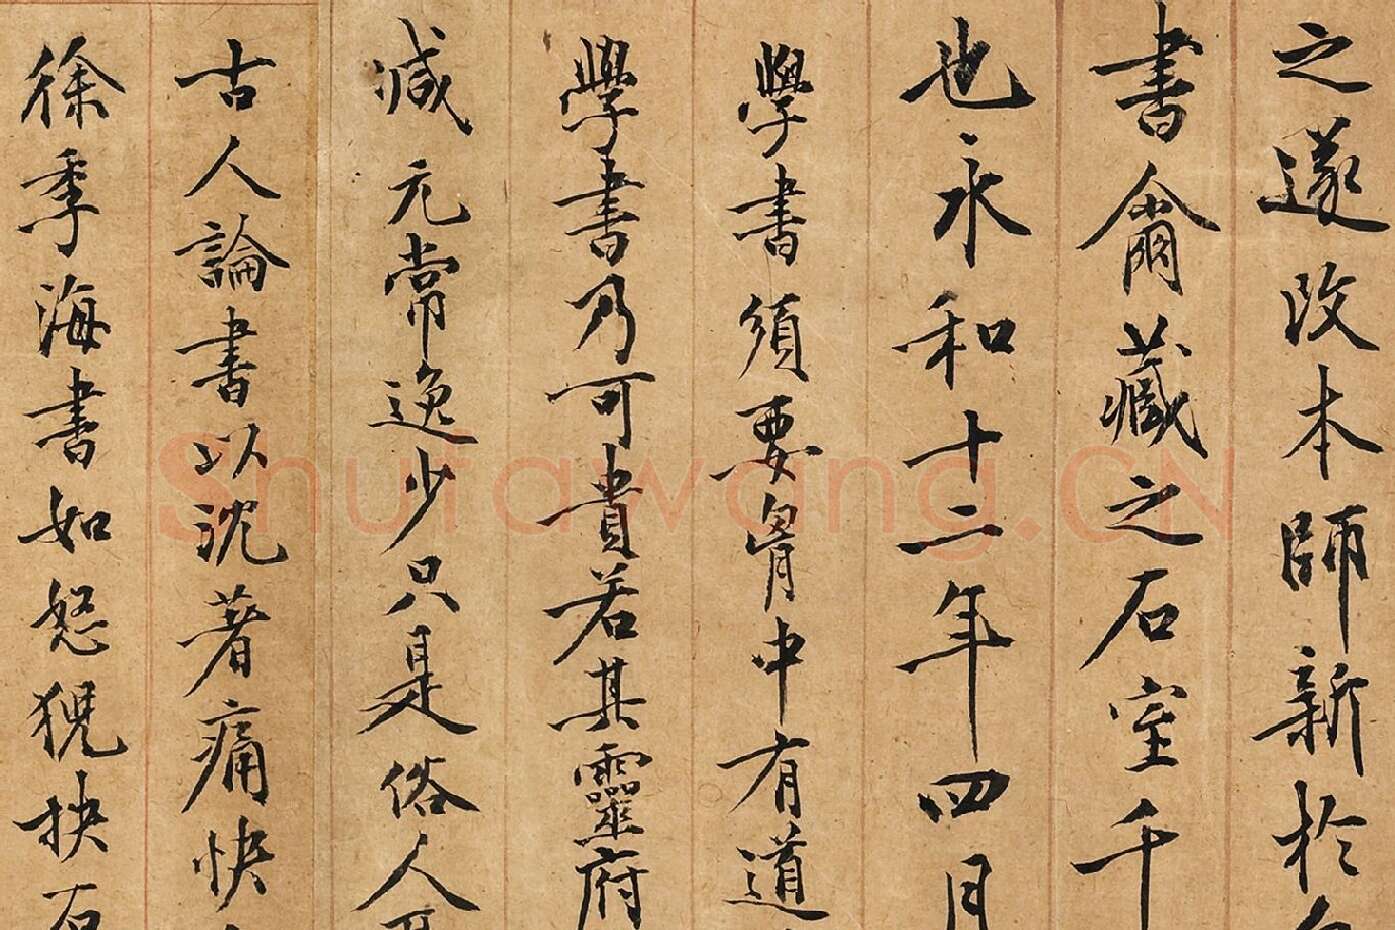 之遂改本師新於
書爾藏之石室千
也永和十二年四月
學書須要胷中有道
學書乃可貴若其靈府
減元常逸少只是俗人
古人論書以沈著痛快
徐季海書如怒猊抉石
Shufawang.CN